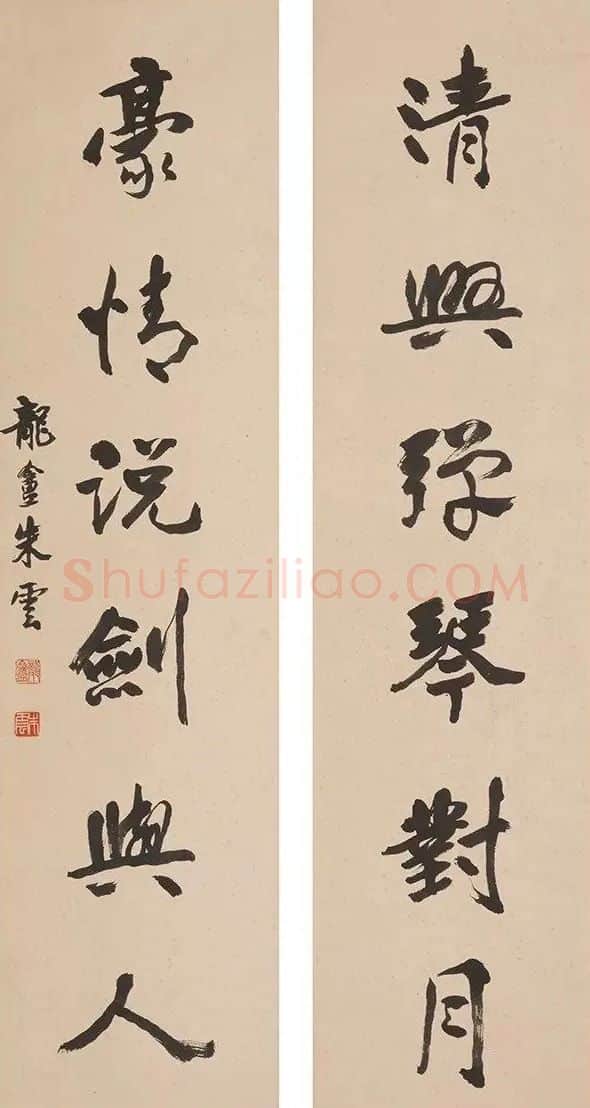 清興彈琴對月
豪情说劍與人
龍盦朱雲
Shufaziliao.COM